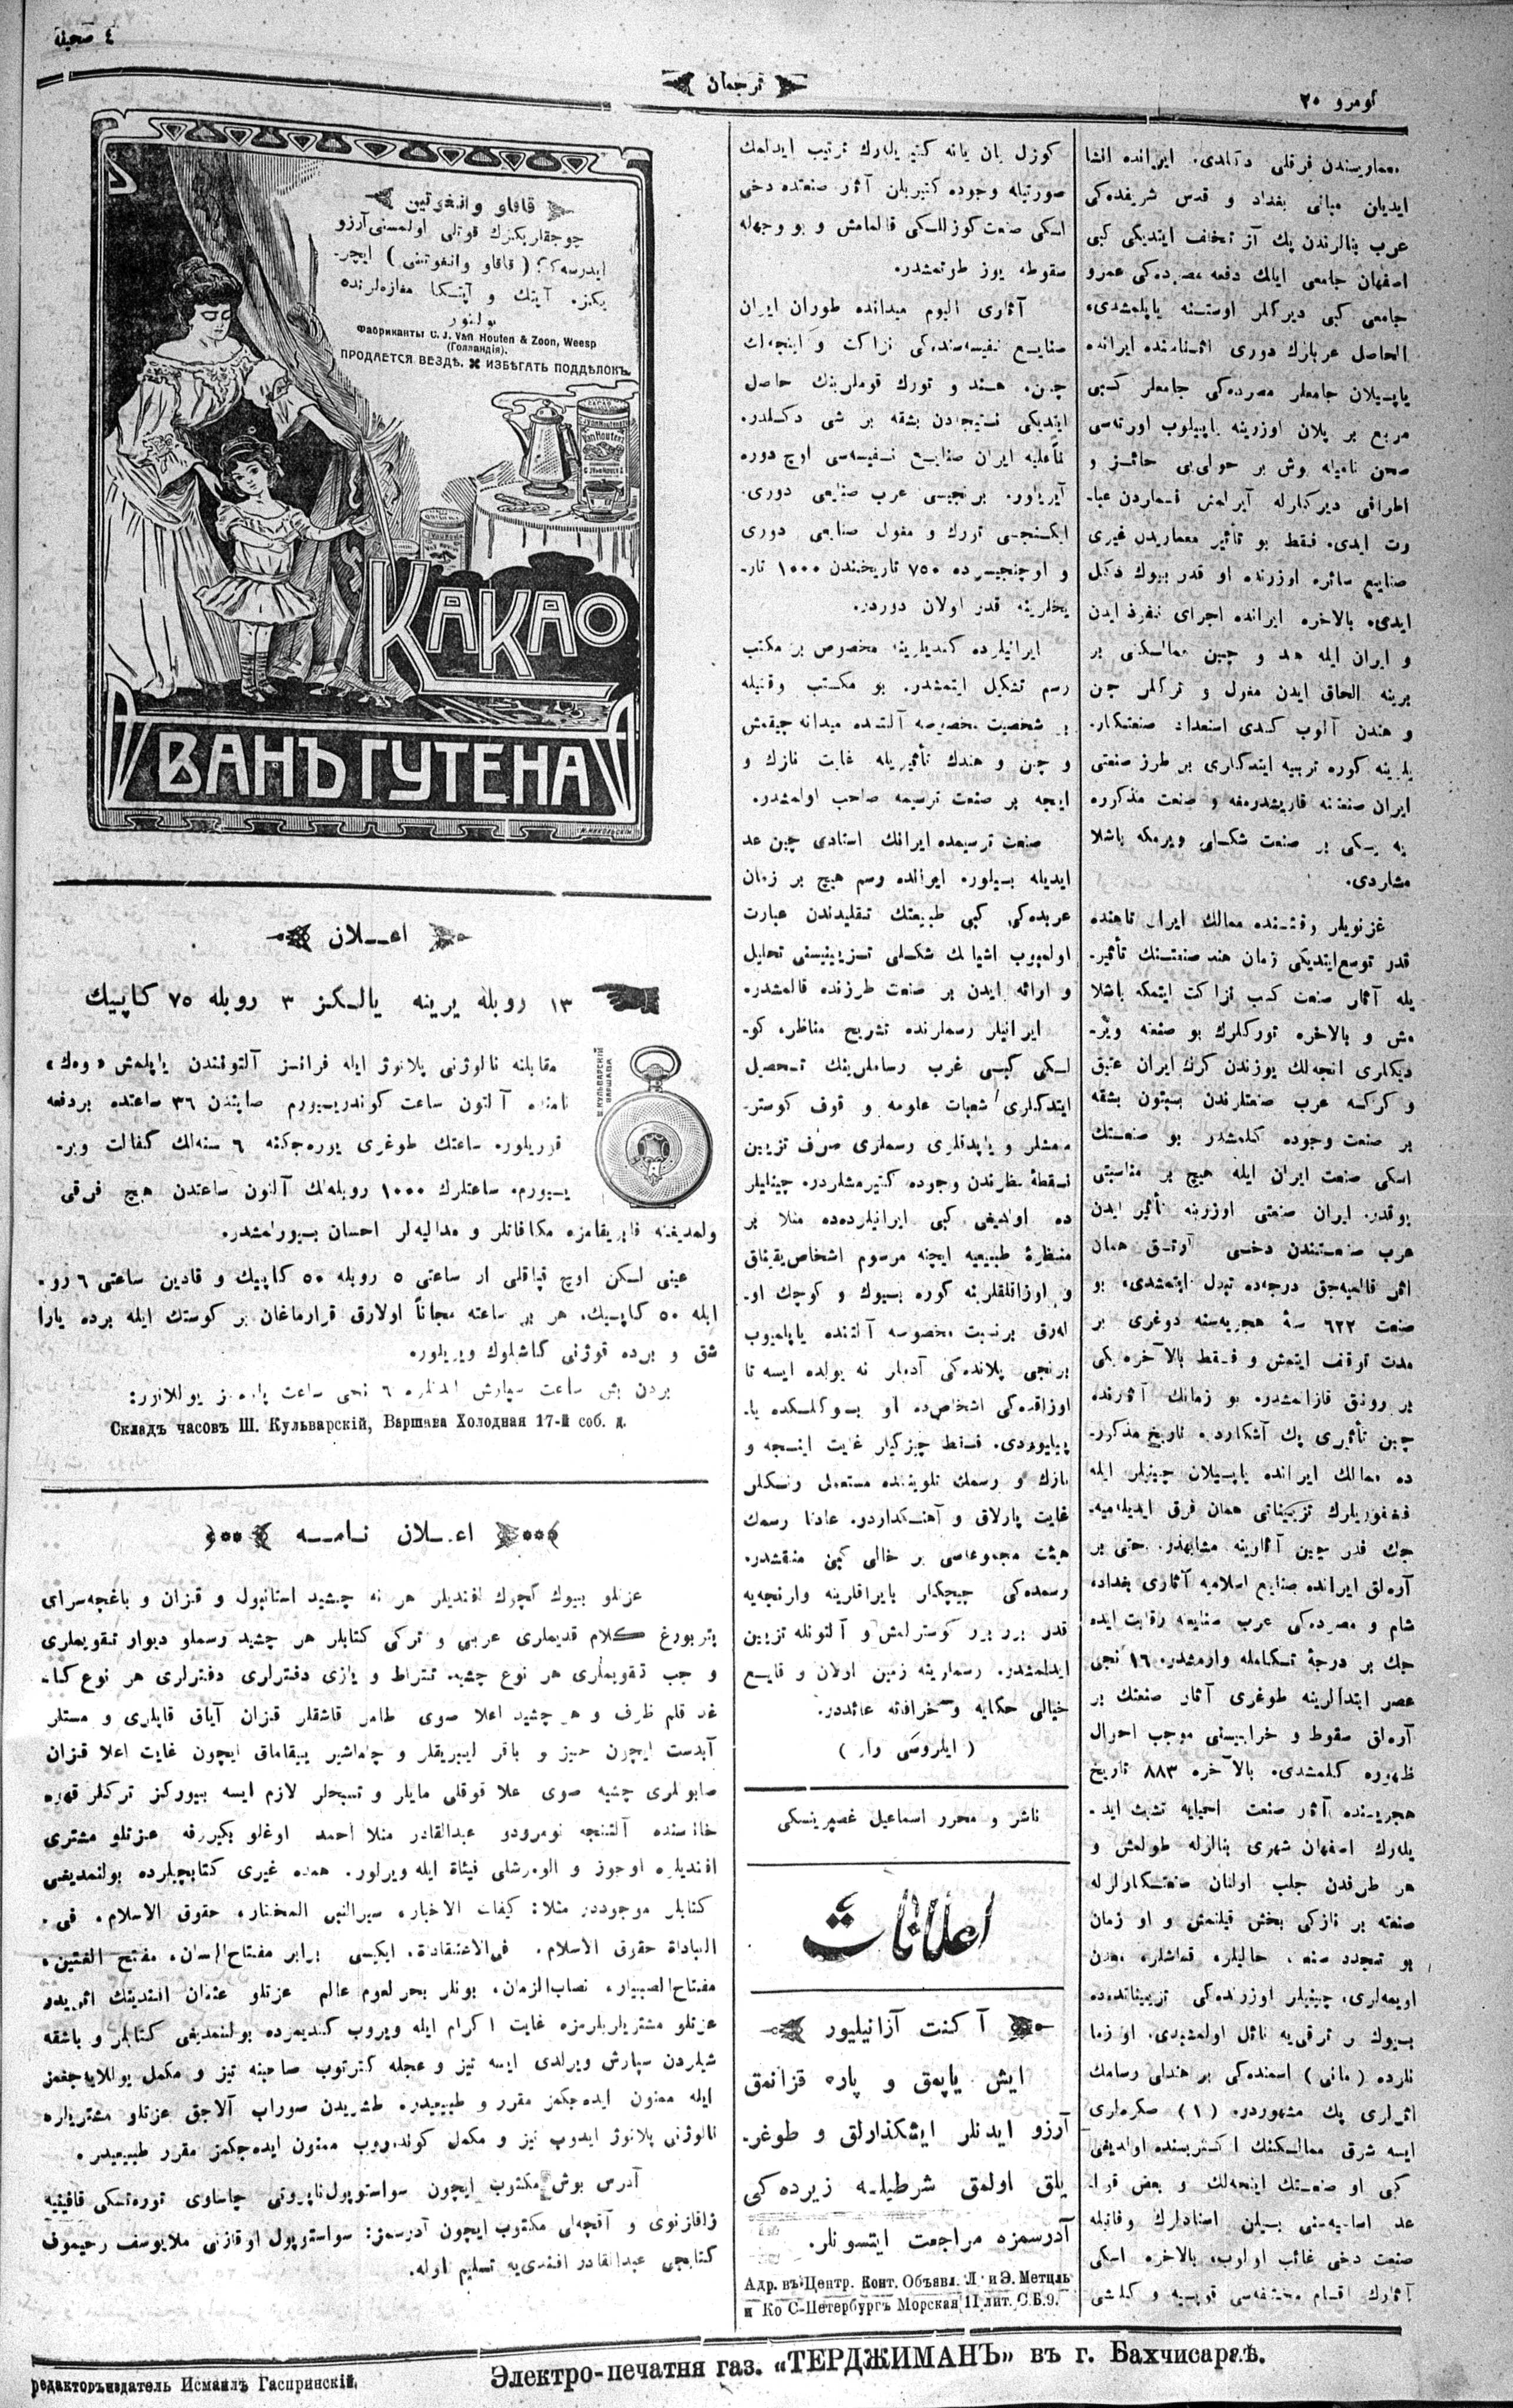 ٤ صحيفه
ترجمان
نومرو ٢٥
معماريسندن فرقلى دكلدى. ايرانده انشا
ايديلن مبانى بغداد و قدس شريفده‌كى
عرب بنالرندن پك آز تخالف ايتديكى كبى
اصفهان جامعى ايلك دفعه مصرده‌كى عمرو
جامعى كبى ديركلر اوستنه ياپلمشدى.
الحاصل عربلرك دورى اثناسنده ايرانده
ياپيلان جامعلر مصرده‌كى جامعلر كبى
مربع بر پلان اوزرينه ياپيلوب اورته‌سى
صحن ناميله بوش بر حولى‌يى حائز و
اطرافى ديركلرله آيرلمش قسملردن عبا-
رت ايدى. فقط بو تأثير معماريدن غيرى
صنايع سائره اوزرنده او قدر بيوك دكل
ايدى. بالاخره ايرانده اجراى نفوذ ايدن
و ايران ايله هند و چين ممالكنى بر
برينه الحاق ايدن مغول و تركلر چين
و هندن آلوب كندى استعداد صنعتكار-
يلرينه كوره تربيه ايتدكلرى بر طرز صنعتى
ايران صنعتنه قاريشدرمغه و صنعت مذكوره
يه يكى بر صنعت شكلى ويرمكه باشلا
مشلردى.
غزنويلر وقتنده ممالك ايران تا هنده
قدر توسع ايتديكى زمان هند صنعتنك تأثير-
يله آثار صنعت كسب نزاكت ايتمكه باشلا
مش و بالاخره توركلرك بو صنعته وير-
ديكلرى انجه‌لك يوزندن كرك ايران عتيق
و كركسه عرب صنعتلرندن بستون بشقه
بر صنعت وجوده كلمشدر بو صنعتك
اسكى صنعت ايران ايله هيچ بر مناسبتى
يوقدر. ايران صنعتى اوزرينه تأثير ايدن
عرب صنعتندن دخى آرتق همان
اثر قالميه‌جق درجه‌ده تبدل ايتمشدى. بو
صنعت ٦٢٢ سنۀ هجريه‌سنه دوغرى بر
مدت توقف ايتمش و فقط بالآخره يكى
بر رونق قازانمشدر. بو زمانك آثارنده
چين تأثيرى پك آشكاردر. تاريخ مذكور-
ده ممالك ايرانده ياپيلان چينيلر ايله
فغفوريلرك تزييناتى همان فرق ايديلميه-
جك قدر چين آثارينه مشابهدر. حتى بر
آره‌لق ايرانده صنايع اسلاميه آثارى بغداد
شام و مصرده‌كى عرب صنايعه رقابت ايده
جك بر درجۀ تكامله وارمشدر. ١٦ نجى
عصر ابتدالرينه طوغرى آثار صنعتك بر
آره‌لق سقوط و خرابيسنى موجب احوال
ظهوره كلمشدى. بالآخره ٨٨٣ تاريخ
هجريسنده آثار صنعت احيايه تشبث ايد-
يله‌رك اصفهان شهرى بنالرله طولمش و
هر طرفدن جلب اولنان صنعتكارلرله
صنعته بر نازكى بخش قيلنمش و او زمان
بو تجدد صنعت حاليلر، قماشلر، معدن
اويمه‌لرى، چينيلر اوزرنده‌كى تزييناتده‌ده
بيوك بر ترقى‌يه نائل اولمشيدى. او زما
نلرده (مانى) اسمنده‌كى بر هندلى رسامك
اثرلرى پك مشهوردر. (١) صكره‌لرى
ايسه شرق ممالكنك اكثريسنده اولديغى
كبى او صنعتك اينجه‌لك و بعض قوا-
عد اساسيه‌سنى بيلن استادلرك وفاتيله
صنعت دخى غائب اولوب، بالاخره اسكى
آثارك اقسام مختلفه‌سى قوپيه و كلشى
كوزل يان يانه كتيريله‌رك ترتيب ايدلمك
صورتيله وجوده كتيريلن آثار صنعتده دخى
اسكى صنعت كوزللكى قالمامش و بو وجهله
سقوطه يوز طوتمشدر.
آثارى اليوم ميدانده طوران ايران
صنايع نفيسه‌سنده‌كى نزاكت و اينجه‌لك
چين، هند و تورك قوملرينك حاصل
ايتديكى نتيجه‌دن بشقه بر شى دكلدر.
بناءً عليه ايران صنايع نفيسه‌سى اوچ دوره
آيريلور. برنجيسى عرب صنايعى دورى،
ايكنجى تورك و مغول صنايعى دورى
و اوچنجيسى ده ٧٥٠ تاريخندن ١٠٠٠ تار-
يخلرينه قدر اولان دوردر.
ايرانيلرده كنديلرينه مخصوص بر مكتب
رسم تشكيل ايتمشدر. بو مكتب وقتيله
بر شخصيت مخصوصه آلتنده ميدانه چيقمش
و چين و هندك تأثيريله غايت نازك و
اينجه بر صنعت ترسيمه صاحب اولمشدر.
صنعت ترسيمده ايرانك استادى چين عد
ايديله بيلور. ايرانده رسم هيچ بر زمان
غربده‌كى كبى طبيعتك تقليدندن عبارت
اولميوب اشيانك شكلى تزيينيسنى تحليل
و ارائه ايدن بر صنعت طرزنده قالمشدر.
ايرانيلر رسملرنده تشريح مناظر، كو-
لكى كبى غرب رساملرينك تحصيل
ايتدكلرى شعبات علومه و قوف كوستر-
ممشلر و ياپدقلرى رسملرى صرف تزيين
نقطۀ نظرندن وجوده كتيرمشلردر. چينليلر
ده اولديغى كبى ايرانيلرده‌ده مثلا بر
منظرۀ طبيعيه ايچنه مرسوم اشخاص يقينلق
و اوزاقلقلرينه كوره بيوك و كوچك او-
له‌رق بر نسبت مخصوصه آلتنده ياپلميوب
برنجى پلانده‌كى آدملر نه بولده ايسه تا
اوزاقده‌كى اشخاص‌ده او بيوكلكده يا-
پيليوردى. فقط چيزكيلر غايت اينجه و
نازك و رسمك تلويننده مستعمل رنكلر
غايت پارلاق و آهنكداردر. عادتا رسمك
هيئت مجموعه‌سى بر خالى كبى منقشدر.
رسمده‌كى چيچكلر ياپراقلرينه وارنجه‌يه
قدر برر برر كوسترلمش و آلتونله تزيين
ايدلمشدر. رسملرينه زمين اولان و قايع
خيالى حكايه و خرافاته عائددر.
( ايلروسى وار )
ناشر و محرر اسماعيل غصپرينسكى
اعلانات
آكنت آرانيليور
ايش ياپمق و پاره قزانمق
آرزو ايدنلر ايشكذارلق و طوغر-
يلق اولمق شرطيله زيرده‌كى
آدرسمزه مراجعت ايتسونلر.
Адр. въ Центр. Конт. Объявл. Л. и Э. Метцль
и Ко С-Петербургъ Морская 11 лит. С.Б.9.
قاقاو وانغوتين
چوجقلريكزك قوتلى اولمسنى آرزو
ايدرسه‌كز (قاقاو وانغوتنى) ايچر-
يكز. آپتك و آپتكا مغازه‌لرنده
بولنور
Фабриканты C. J. Van Houten & Zoon, Weesp
(Голландія).
ПРОДАЕТСЯ ВЕЗДѢ. ИЗБѢГАТЬ ПОДДѢЛОКЪ.
КАКАО
ВАНЪ ГУТЕНА
اعلان
١٣ روبله يرينه يالكز ٣ روبله ٧٥ كاپيك
Ш. КУЛЬВАРСКІЙ
ВАРШАВА
مقابلنه نالوژنى پلاتوژ ايله فرانسز آلتونندن ياپلمش «وه‌ك»
نامنده آلتون ساعت كوندرييورم صايتدن ٣٦ ساعتده بردفعه
قوريلور. ساعتك طوغرى يوره‌جكنه ٦ سنه‌لك كفالت وير-
يييورم. ساعتلرك ١٠٠٠ روبله‌لك آلتون ساعتدن هيچ فرقى
ولمديغنه فابريقامزه مكافاتلر و مداليه‌لر احسان بيورلمشدر.
عينى لكن اوچ قپاقلى ار ساعتى ٥ روبله ٥٠ كاپيك و قادين ساعتى ٦ رو-
ايله ٥٠ كاپيك. هر بر ساعته مجاناً اولارق قرارماغان بر كوستك ايله برده يارا
شق و برده قوژنى كاشلوك ويريلور.
بردن بش ساعت سپارش ايدنلره ٦ نجى ساعت پاره‌سز يوللانور:
Складъ часовъ Ш. Кульварскій, Варшава Холодная 17-й соб. д.
اعلان نامه
عزتلو بيوك كچوك افنديلر هر نه چشيد استانبول و قزان و باغچه‌سراى
پتربورغ كلام قديملرى عربى و تركى كتابلر هر چشيد رسملو ديوار تقويملرى
و جب تقويملرى هر نوع چشيد تتراط و يازى دفترلرى دفترلرى هر نوع كا-
غد قلم ظرف و هر چشيد اعلا صوى طاهر قاشقلر قزان آياق قابلرى و مستلر
آبدست ايچون جيز و باقر ليبريقلر و چاماشير ييقاماق ايچون غايت اعلا قزان
صابونلرى چشيد صوى علا قوقلى مايلر و تسبحلر لازم ايسه بيوركز تركلر قهوه
خانه‌سنده آلتنجه نومرودو عبدالقادر منلا احمد اوغلو بكيررفه عزتلو مشترى
افنديلره اوجوز و الويرشلى فيئاة ايله ويرلور. همده غيرى كتابچيلرده بولنمديغى
كتابلر موجوددر مثلا: كيفات الاخبار، سيرالنبى المختار، حقوق الاسلام، فى-
العباداة حقوق الاسلام، فى‌الاعتقادة، ايكيسى برابر مفتاح‌اللسان، مفتح الفتين،
مفتاح‌الصبيار، نصاب‌الزمان، بونلر بحرلعوم عالم عزتلو عثمان افندينك اثريدر
عزتلو مشتريلريلرمزه غايت اكرام ايله ويروب كنديمزده بولنمديغى كتابلر و باشقه
شيلردن سپارش ويرلدى ايسه تيز و عجله كترتوب صاحبنه تيز و مكمل يوللايه‌جغمز
ايله ممنون ايده‌جكمز مقرر و طبيعيدر. طشريدن سوراب آلاجق عزتلو مشتريلره
نالوژنى پلاتوژ ايدوب تيز و مكمل كوندروب ممنون ايده‌جكمز مقرر طبيعيدر.
آدرس بوش مكتوب ايچون سواستوپول ناپروتى چاستاوى توره‌تسكى قافينيه
زاقازنوى و آقچه‌لى مكتوب ايچون آدرسمز: سواستوپول اوقازنى ملايوسف رحيموف
كتابجى عبدالقادر افندى‌يه تسليم اوله.
редакторъ издатель Исмаилъ Гаспринскій.
Электро-печатня газ. «ТЕРДЖИМАНЪ» въ г. Бахчисараѣ.